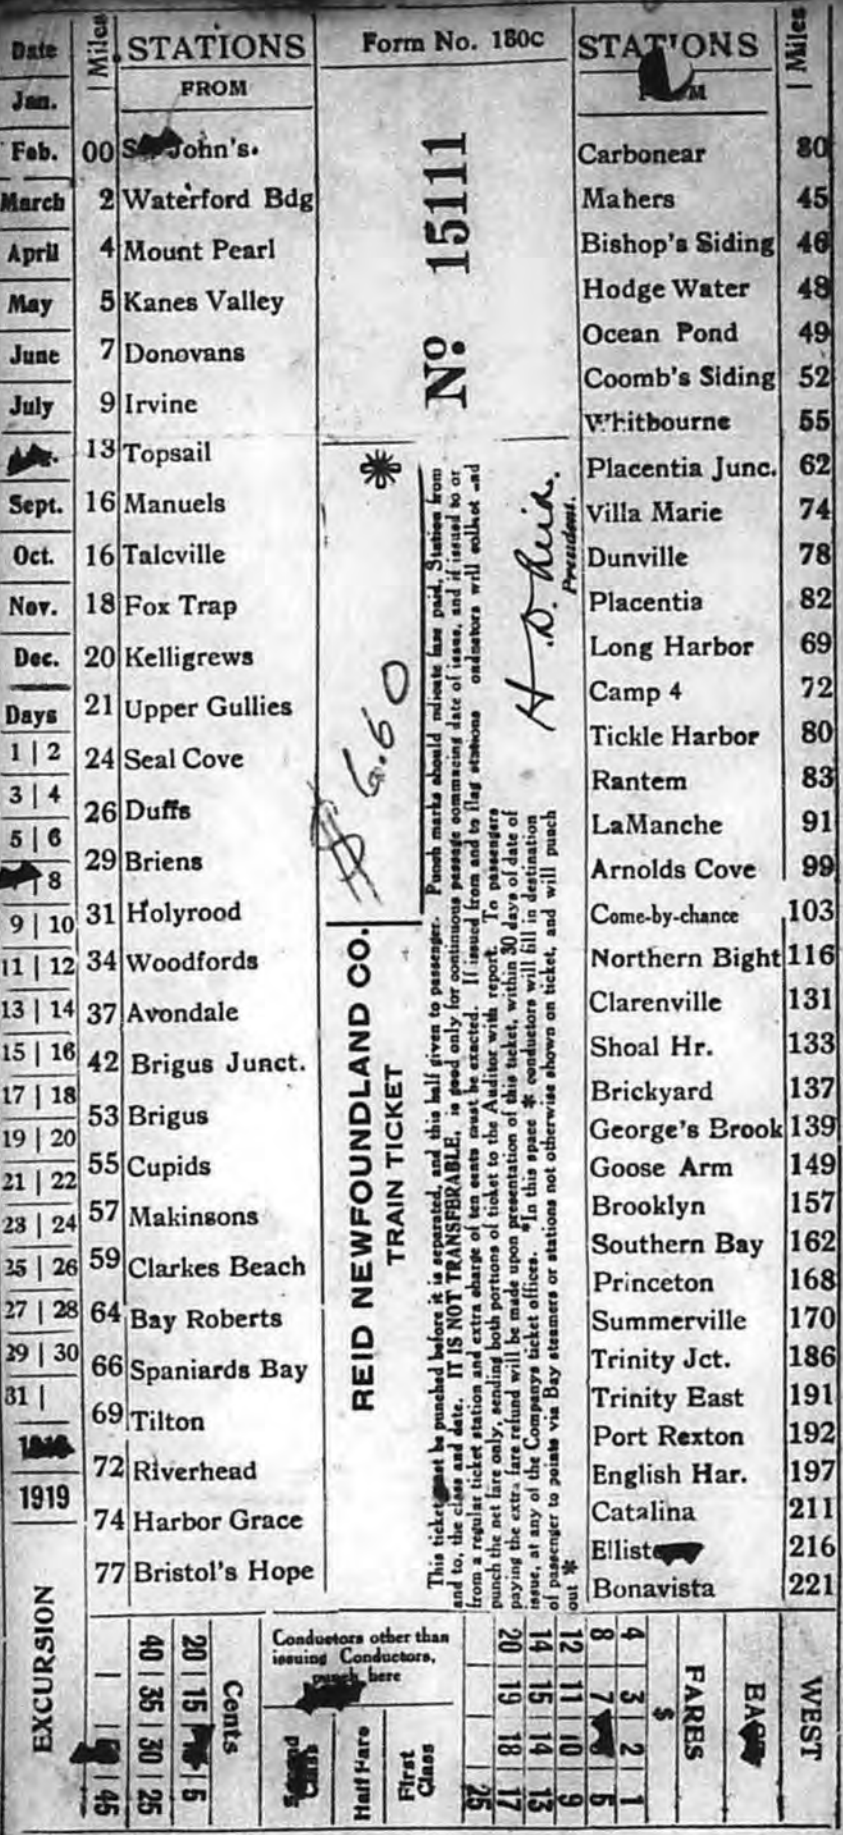 Date
Jan.
Feb.
March
April
May
June
July
Sept.
Oct.
Nov.
Dec.
Days
1 | 2
3 | 4
5 | 6
8
9 | 10
11 | 12
13 | 14
15 | 16
17 | 18
19 | 20
21 | 22
23 | 24
25 | 26
27 | 28
29 | 30
31 |
1919
EXCURSION
Miles STATIONS
FROM
00 St. John's.
2 Waterford Bdg
4 Mount Pearl
5 Kanes Valley
7 Donovans
9 Irvine
13 Topsail
16 Manuels
16 Talcville
18 Fox Trap
20 Kelligrews
21 Upper Gullies
24 Seal Cove
26 Duffs
29 Briens
31 Holyrood
34 Woodfords
37 Avondale
42 Brigus Junct.
53 Brigus
55 Cupids
57 Makinsons
59 Clarkes Beach
64 Bay Roberts
66 Spaniards Bay
69 Tilton
72 Riverhead
74 Harbor Grace
77 Bristol's Hope
Form No. 180C
No. 15111
*
$ 6.60
REID NEWFOUNDLAND CO.
TRAIN TICKET
This ticket must be punched before it is separated, and this half given to passenger. Punch marks should indicate fare paid, Station from
and to, the class and date. IT IS NOT TRANSFERABLE, is good only for continuous passage commencing date of issue, and if issued to or
from a regular ticket station and extra charge of ten cents must be exacted. If issued from and to flag stations conductors will collect and
punch the net fare only, sending both portions of ticket to the Auditor with report. To passengers
paying the extra fare refund will be made upon presentation of this ticket, within 30 days of date of
issue, at any of the Companys ticket offices. *In this space * conductors will fill in destination
of passenger to points via Bay steamers or stations not otherwise shown on ticket, and will punch
out *
H. D. Reid.
President.
STATIONS Miles
FROM
Carbonear 80
Mahers 45
Bishop's Siding 46
Hodge Water 48
Ocean Pond 49
Coomb's Siding 52
Whitbourne 55
Placentia Junc. 62
Villa Marie 74
Dunville 78
Placentia 82
Long Harbor 69
Camp 4 72
Tickle Harbor 80
Rantem 83
LaManche 91
Arnolds Cove 99
Come-by-chance 103
Northern Bight 116
Clarenville 131
Shoal Hr. 133
Brickyard 137
George's Brook 139
Goose Arm 149
Brooklyn 157
Southern Bay 162
Princeton 168
Summerville 170
Trinity Jct. 186
Trinity East 191
Port Rexton 192
English Har. 197
Catalina 211
216
Bonavista 221
Conductors other than
issuing Conductors,
punch here
Second
Class
Half Fare
First
Class
Cents
20 | 15 | 5
40 | 35 | 30 | 25
45
25
20 | 19 | 18 | 17
14 | 15 | 14 | 13
12 | 11 | 10 | 9
8 | 7 | 5
4 | 3 | 2 | 1
$
FARES
EAST
WEST